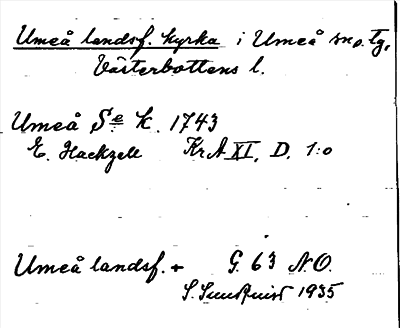 Umeå landsf. kyrka i Umeå sn o. tg,
Västerbottens l.
Umeå Se K. 1743
E. Hackzell KrA XI, D. 1:o
Umeå landsf. + G. 63 N.O.
S. Sundquist 1935